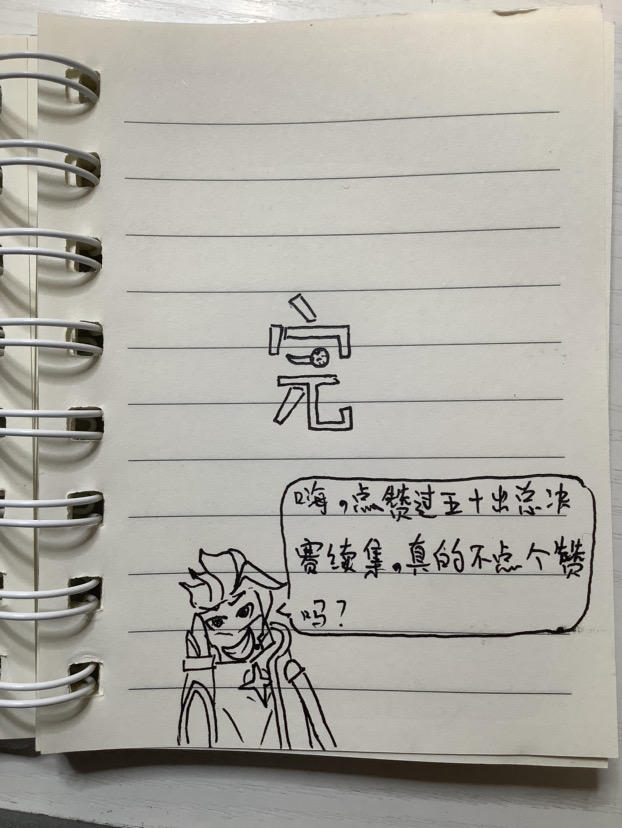 完
嗨,点赞过五十出总决
赛续集,真的不点个赞
吗?